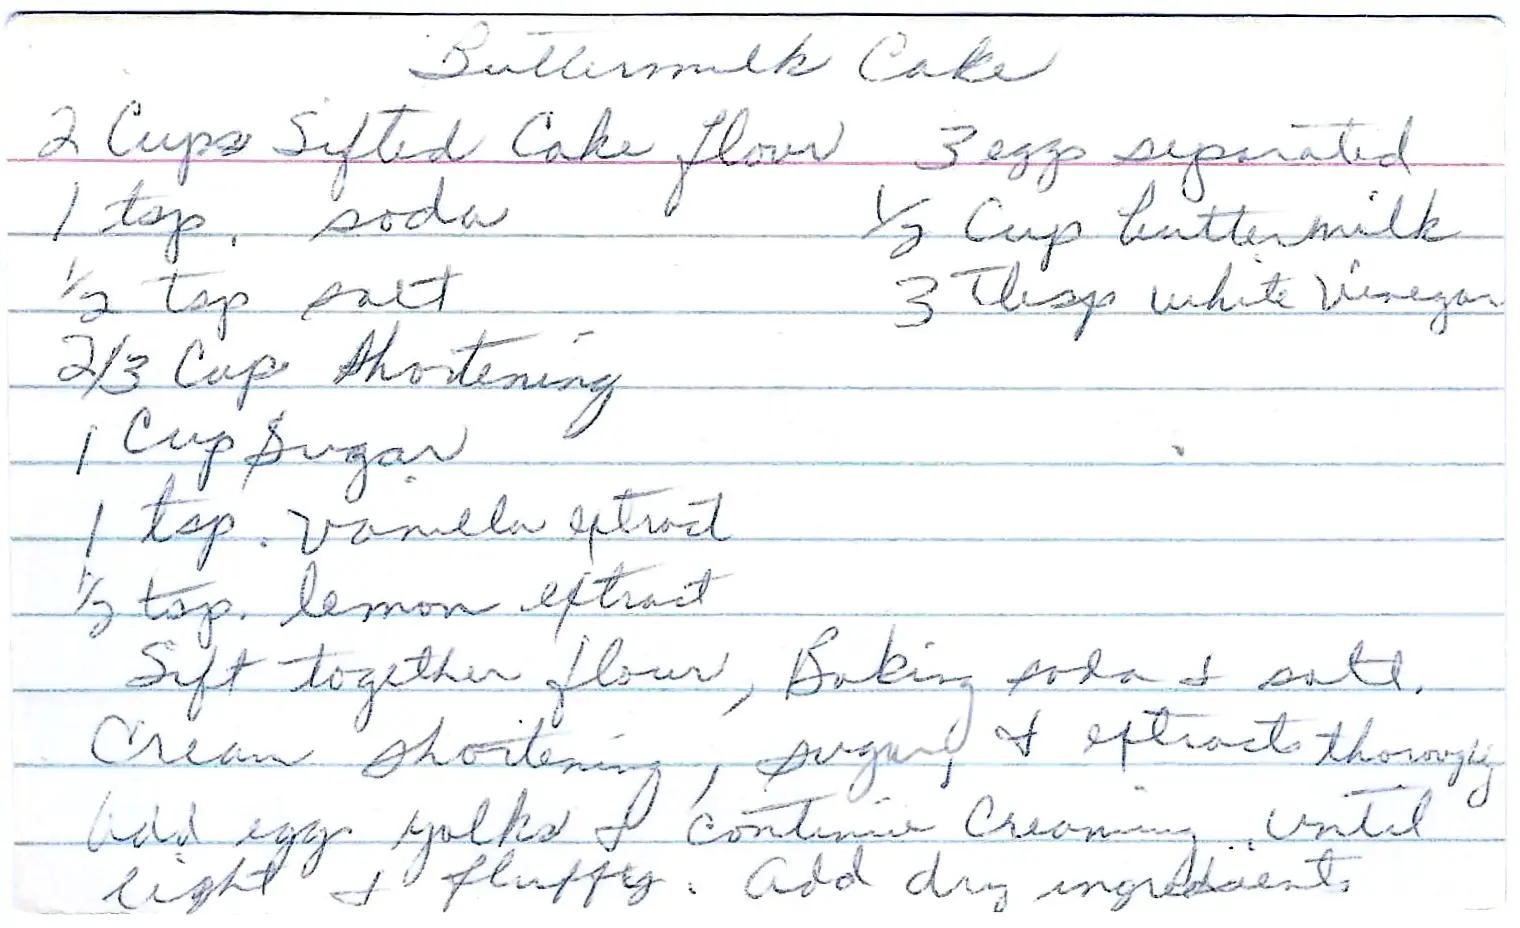 Buttermilk Cake
2 Cups Sifted Cake flour 3 eggs separated
1 tsp. soda 1/2 Cup buttermilk
1/2 tsp salt 3 Tbsp white Vinegar
2/3 Cup shortening
1 Cup Sugar
1 tsp. vanilla extract
1/2 tsp. lemon extract
Sift together flour, Baking soda & salt.
Cream shortening, sugar, & extracts thorougly
Add eggs yolks & continue Creaming until
light & fluffy. Add dry ingredients